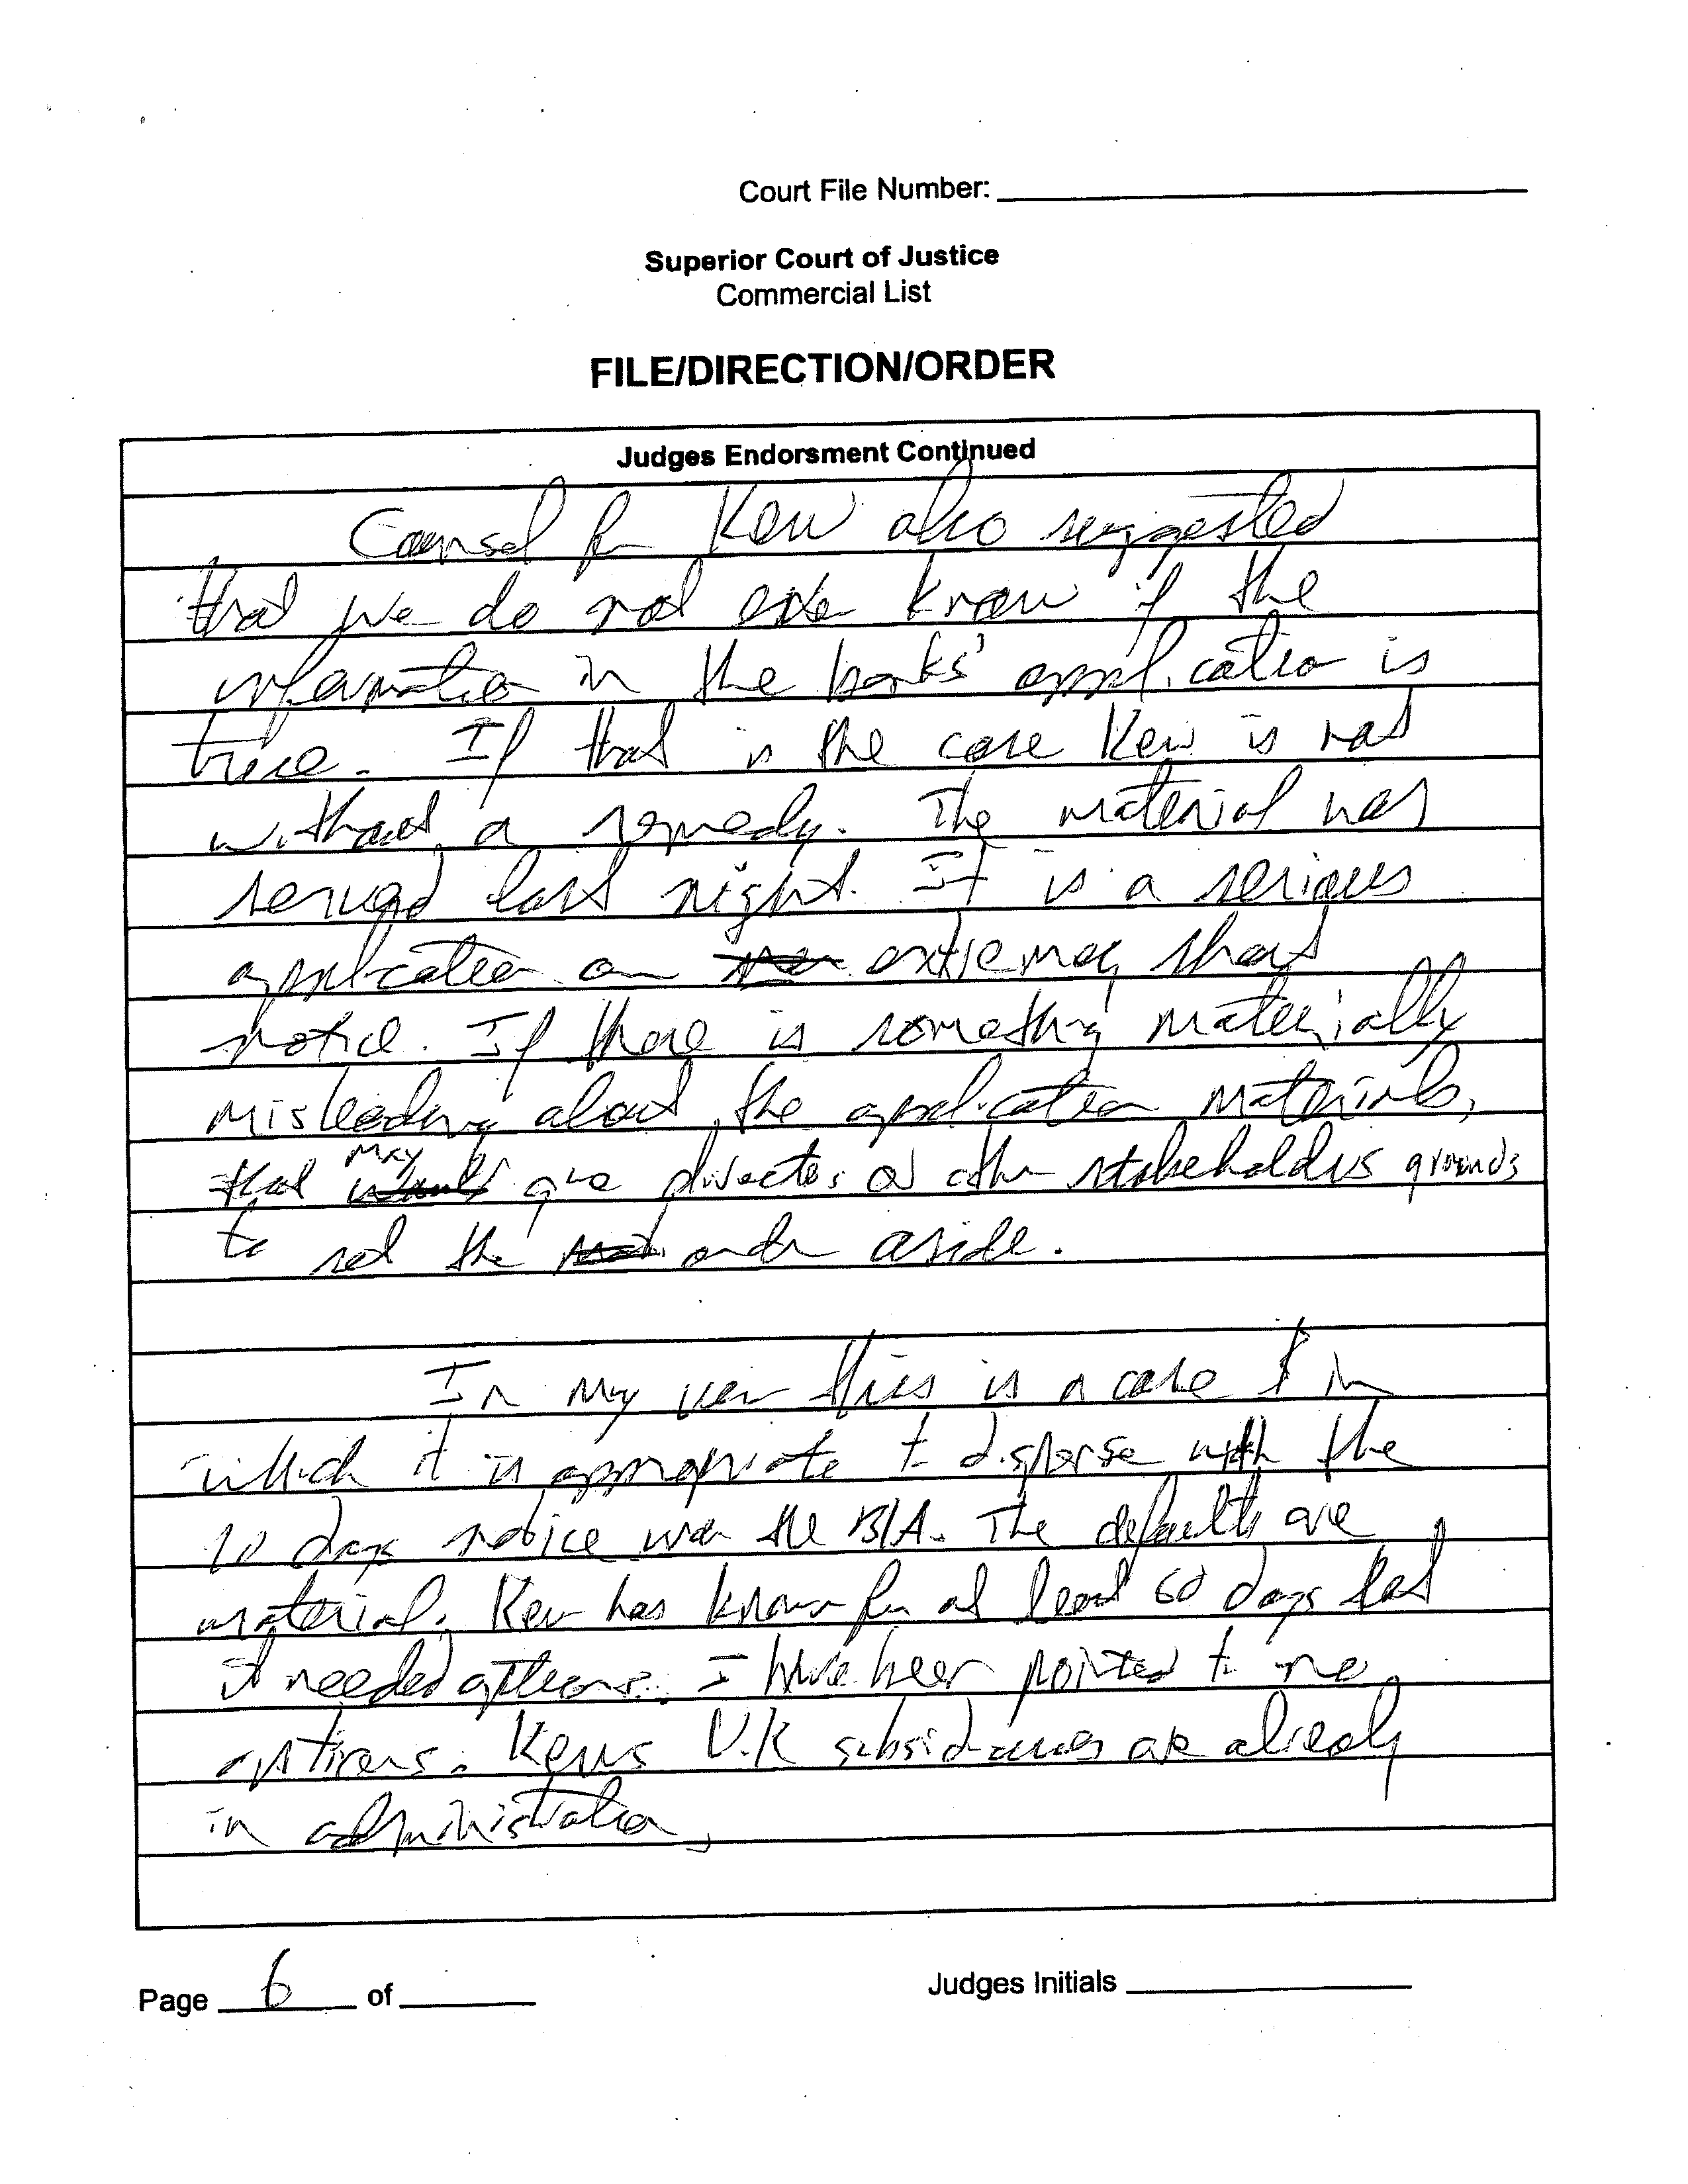 Court File Number:
Superior Court of Justice
Commercial List
FILE/DIRECTION/ORDER
Judges Endorsment Continued
Counsel for Kew also suggested
that we do not even know if the
information in the banks' application is
true. If that is the case Kew is not
without a remedy. The material was
served last night. It is a serious
application on extremely short
notice. If there is something materially
misleading about the application materials,
that may give directors or other stakeholders grounds
to set the order aside.
In my view this is a case in
which it is appropriate to dispense with the
10 days notice under the BIA. The defaults are
material. Kew has known for at least 60 days that
it needed options. I have been pointed to no
options. Kew's U.K subsidiaries are already
in administration.
Page 6 of
Judges Initials